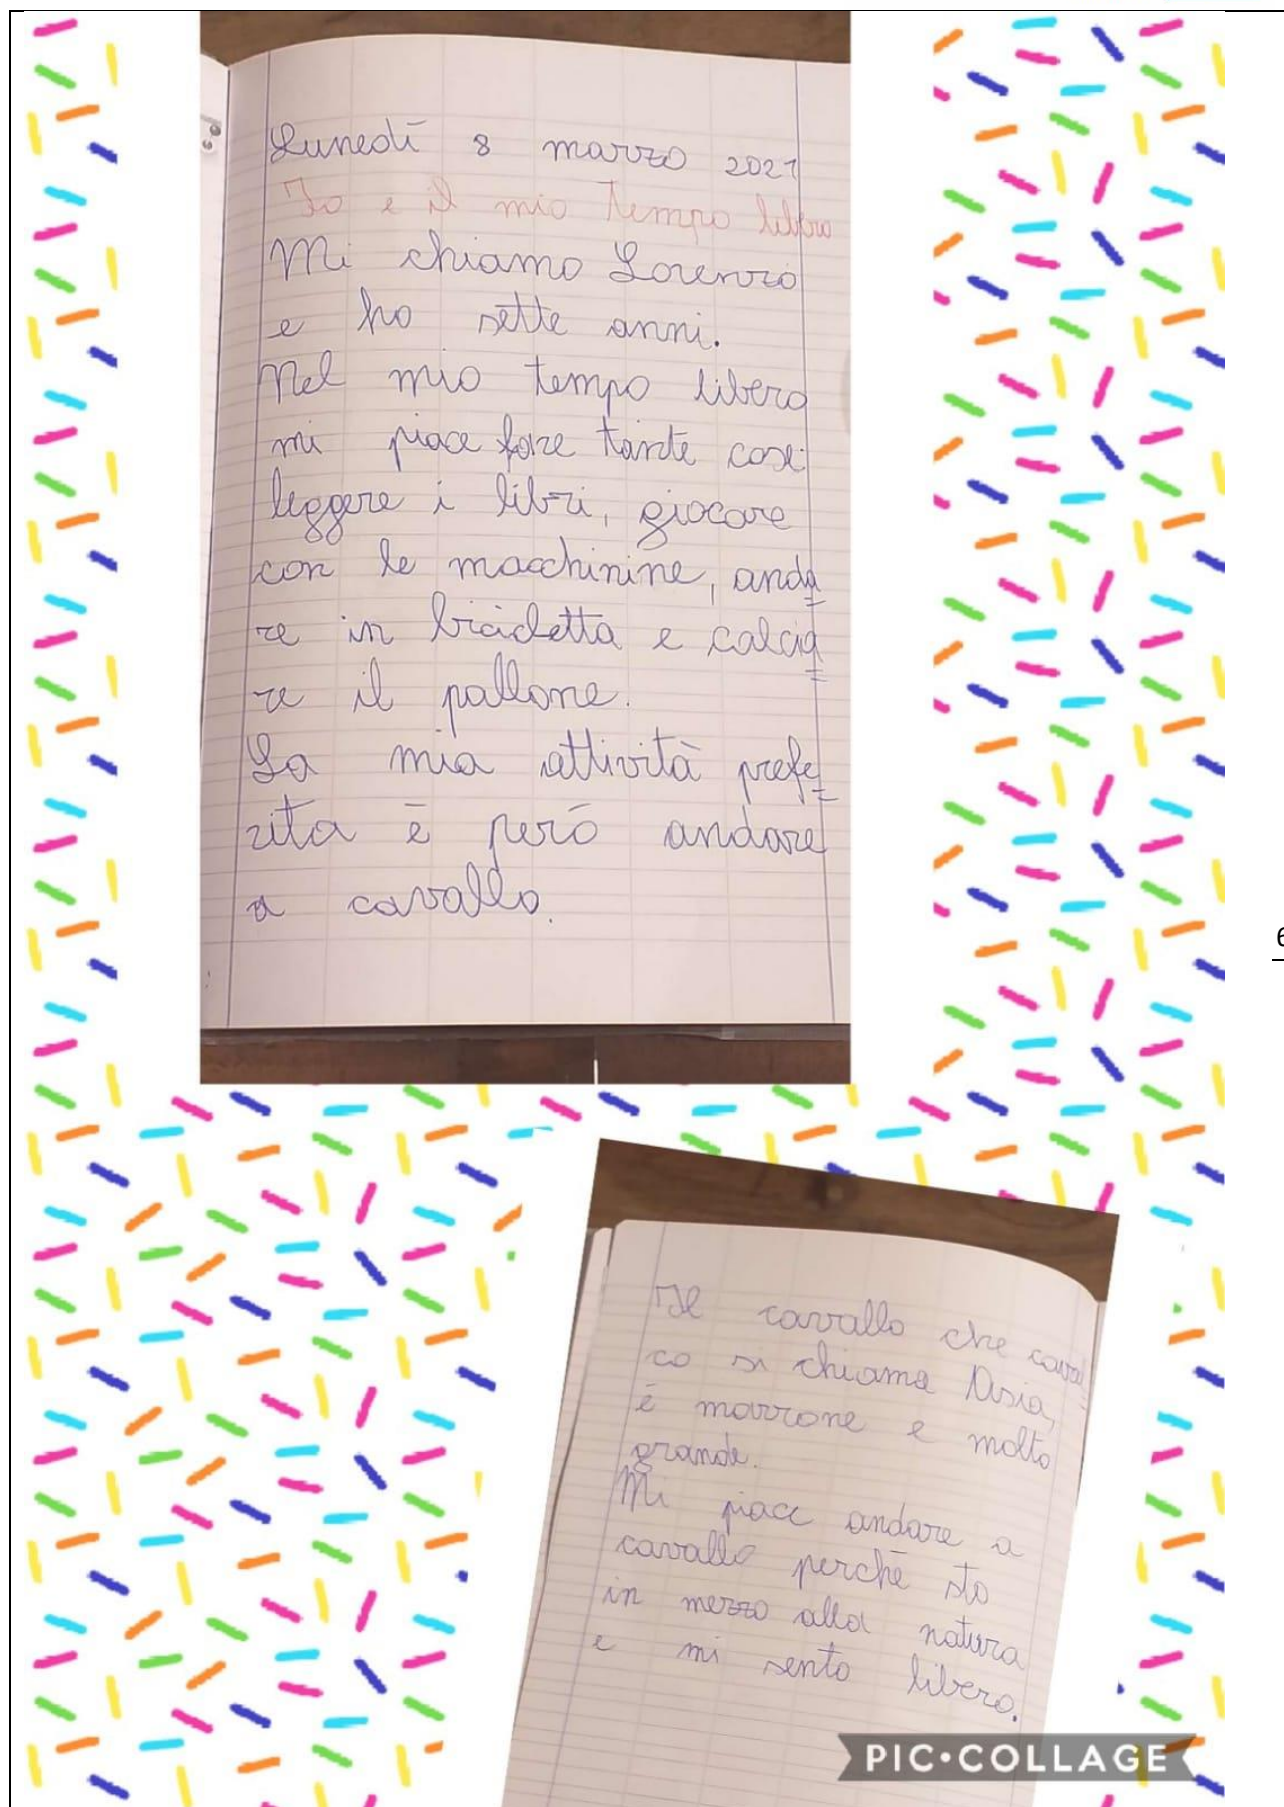 Lunedì 8 marzo 2021
Io e il mio tempo libero
Mi chiamo Lorenzo
e ho sette anni.
Nel mio tempo libero
mi piace fare tante cose:
leggere i libri, giocare
con le macchinine, anda=
re in bicicletta e calcia=
re il pallone.
La mia attività prefe=
rita è però andare
a cavallo.
6
Il cavallo che caval=
co si chiama Asia,
è marrone e molto
grande.
Mi piace andare a
cavallo perché sto
in mezzo alla natura
e mi sento libero.
PIC•COLLAGE